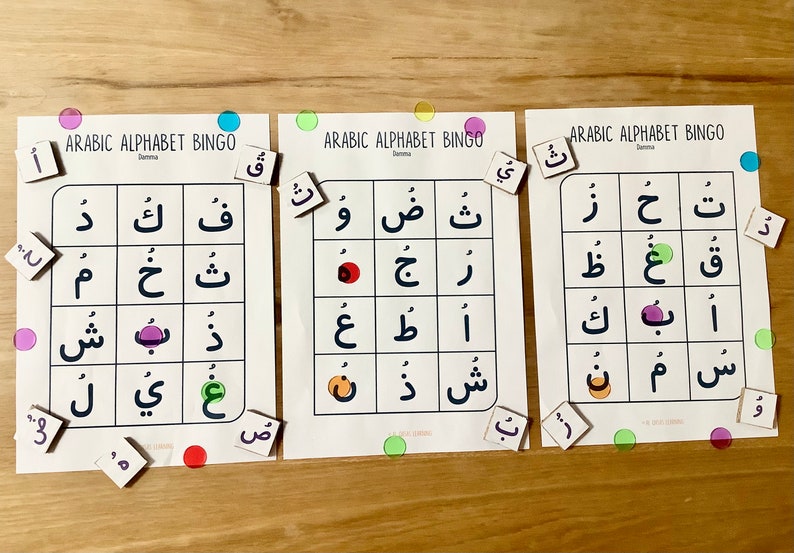 ARABIC ALPHABET BINGO
Damma
فُ كُ دُ
ثُ خُ مُ
ذُ بُ شُ
غُ يُ لُ
LEARNING
اُ
قُ
خُ
ضُ
هُ
صُ
ARABIC ALPHABET BINGO
Damma
ثُ ضُ وُ
رُ جُ هُ
اُ طُ عُ
شُ ذُ نُ
LEARNING
تُ
يُ
بُ
ARABIC ALPHABET BINGO
Damma
تُ حُ زُ
قُ غُ ظُ
اُ بُ كُ
سُ مُ نُ
LEARNING
ثُ
دُ
زُ
وُ